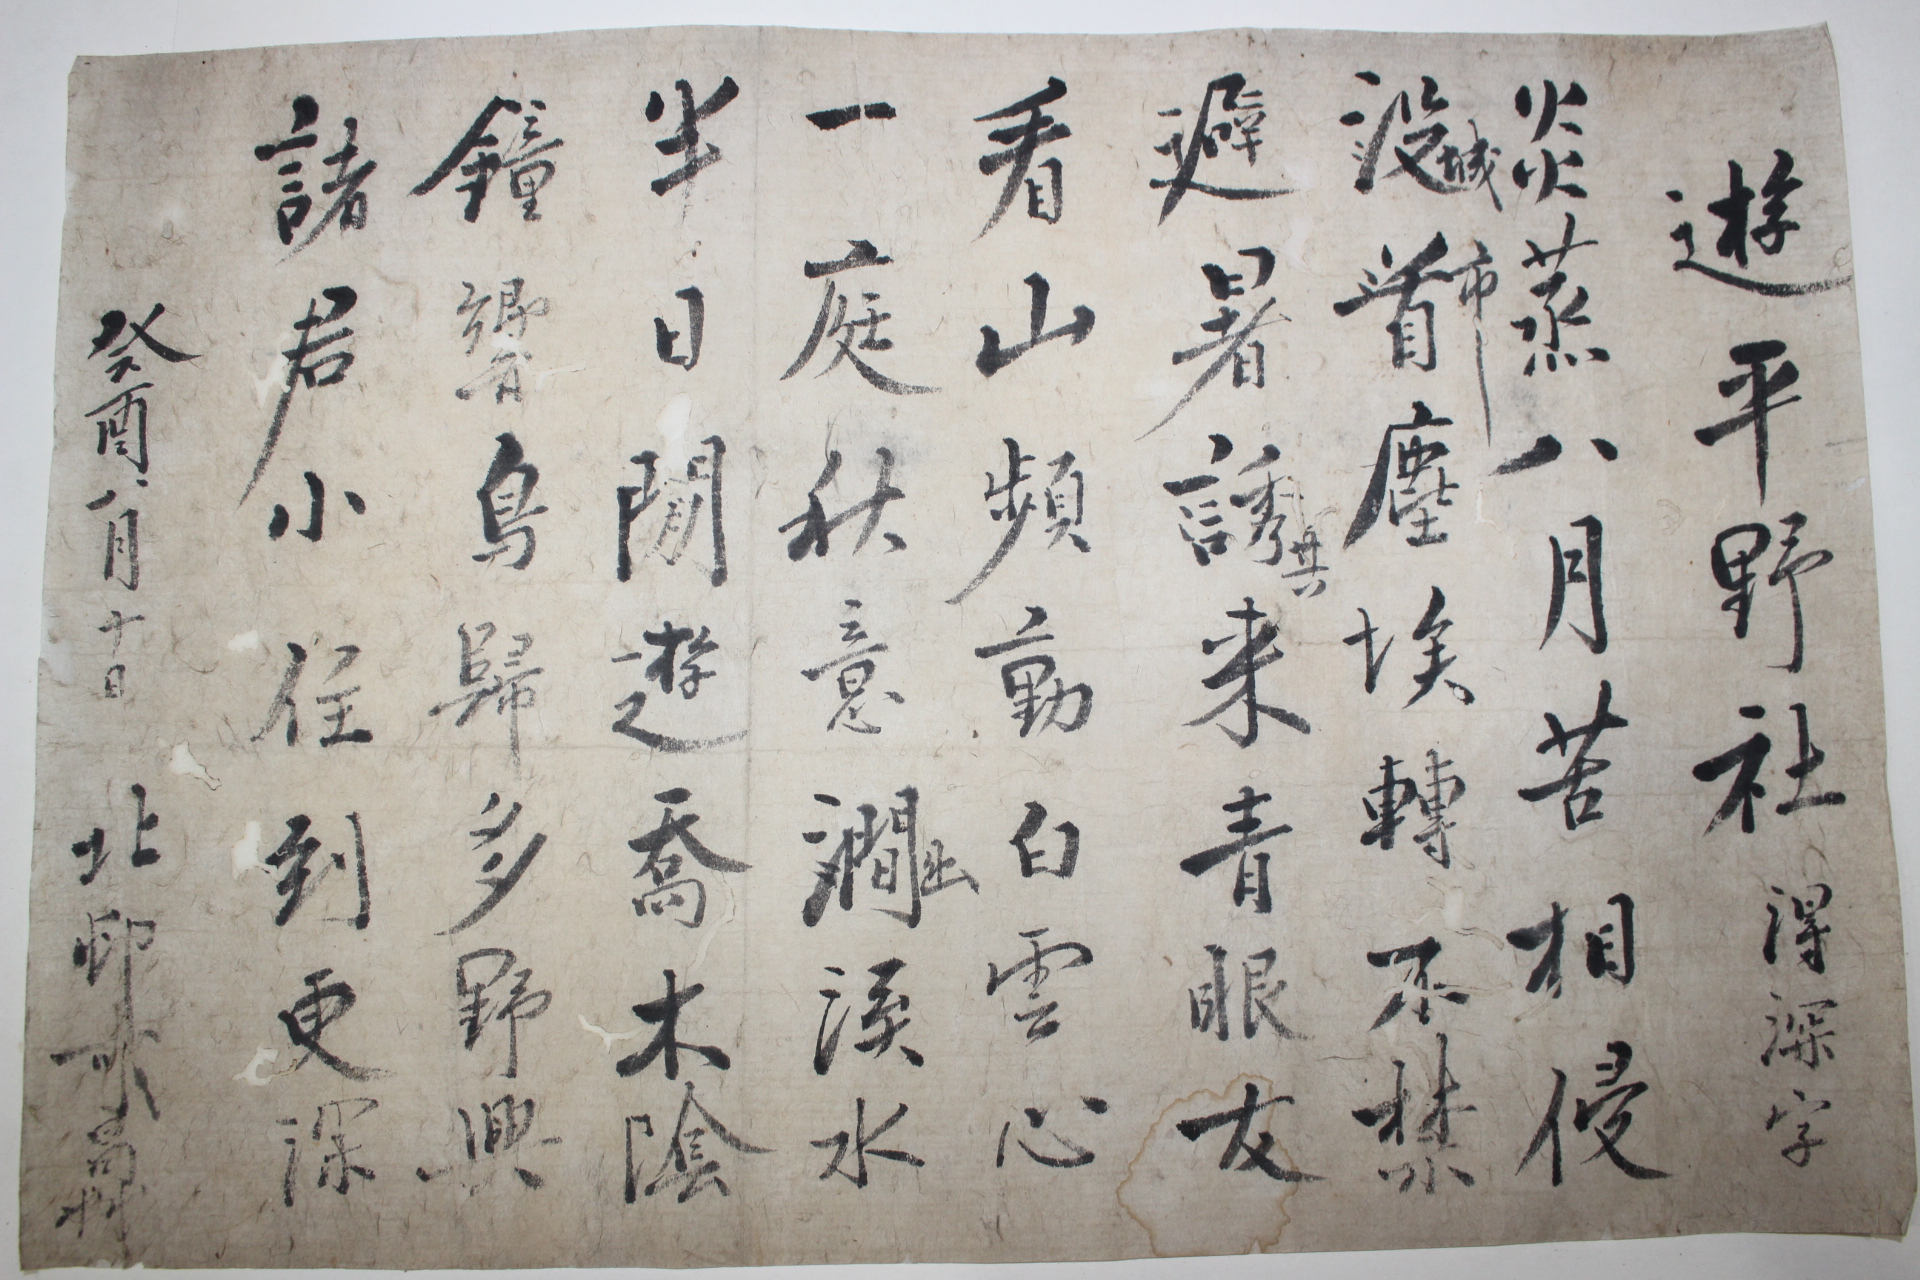 遊平野社 得深字
炎蒸八月苦相侵
城市
沒首塵埃轉不禁
共
避暑誘来青眼友
看山頻動白雲心
一庭秋意澗溪水
半日閒遊喬木陰
鐘響鳥歸多野興
諸君小住到更深
癸酉八月十日 北邨